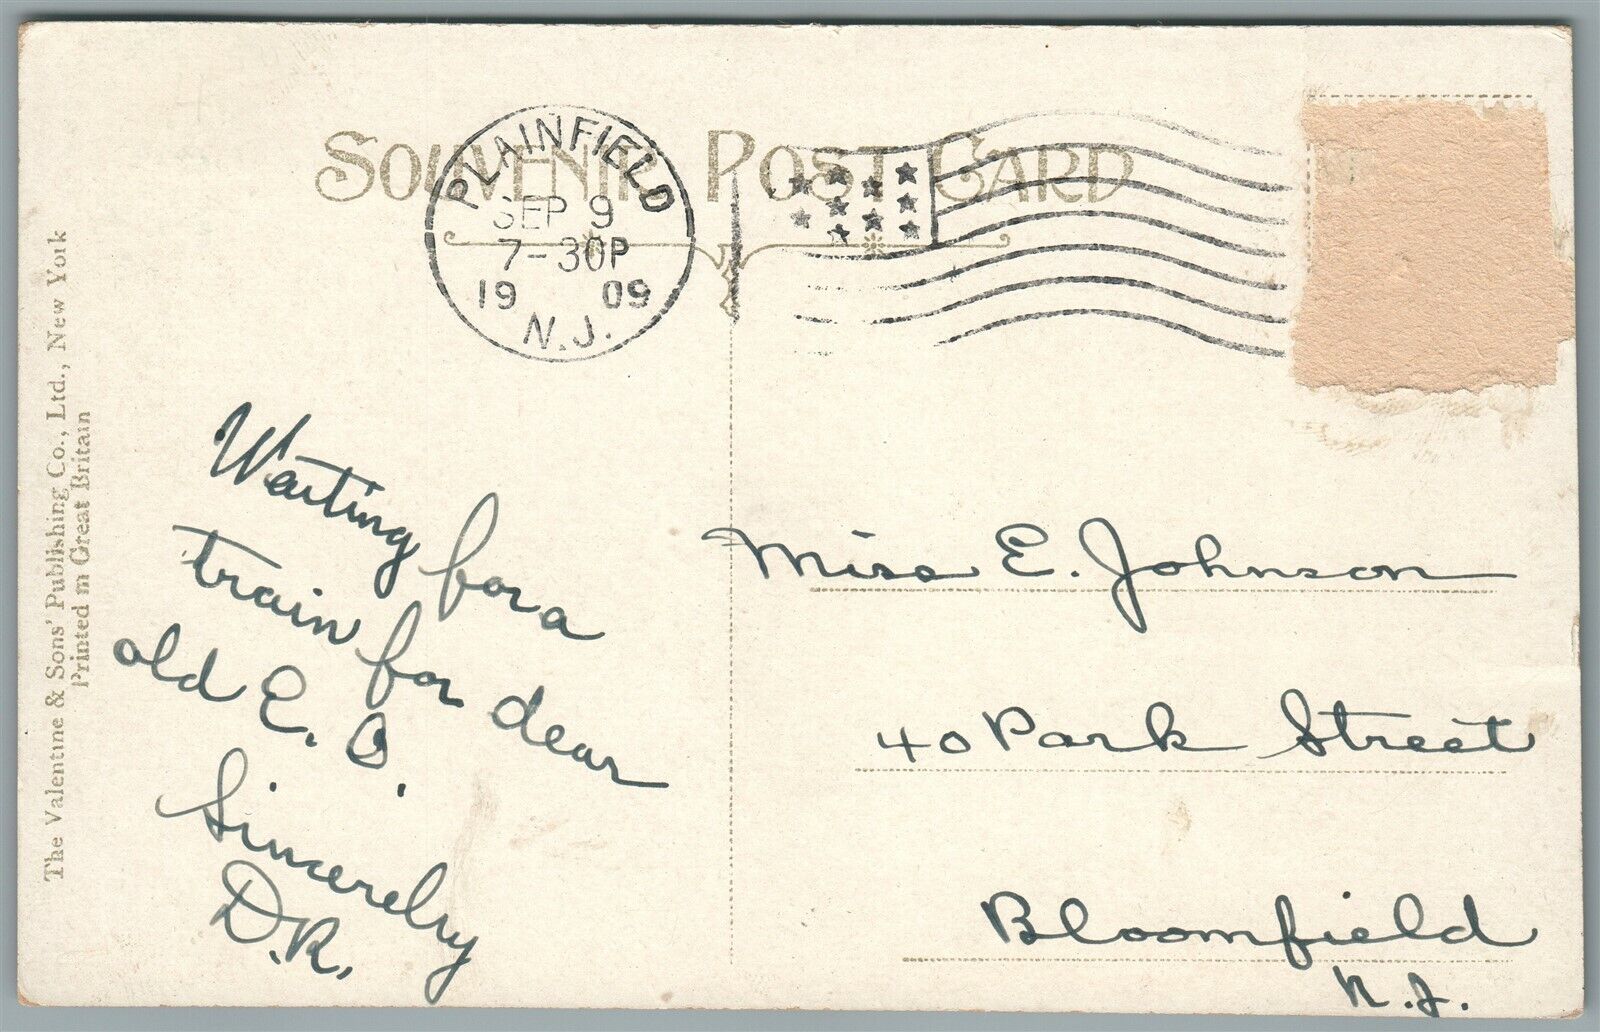 SOUVENIR POST CARD
PLAINFIELD
SEP 9
7-30P
19 09
N.J.
The Valentine & Sons' Publishing Co., Ltd., New York
Printed in Great Britain
Waiting for a
train for dear
old E. O.
Sincerely
D.R.
Miss E. Johnson
40 Park Street
Bloomfield
N.J.